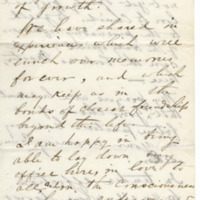 of growth.
We have shared in
experiences which will
touch our memories
forever, and which
may keep us in the
bonds of closest friendship
beyond this life.
I am happy in being
able to lay down my
office here, in love to
all, in the consciousness